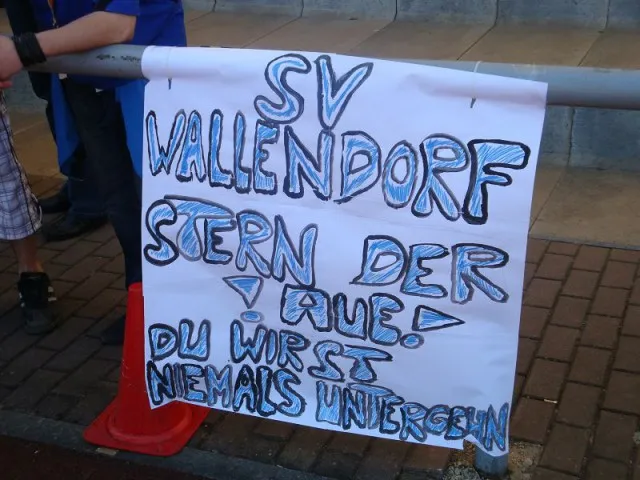 SV
WALLENDORF
STERN DER
! AUE!
DU WIRST
NIEMALS UNTERGEHN